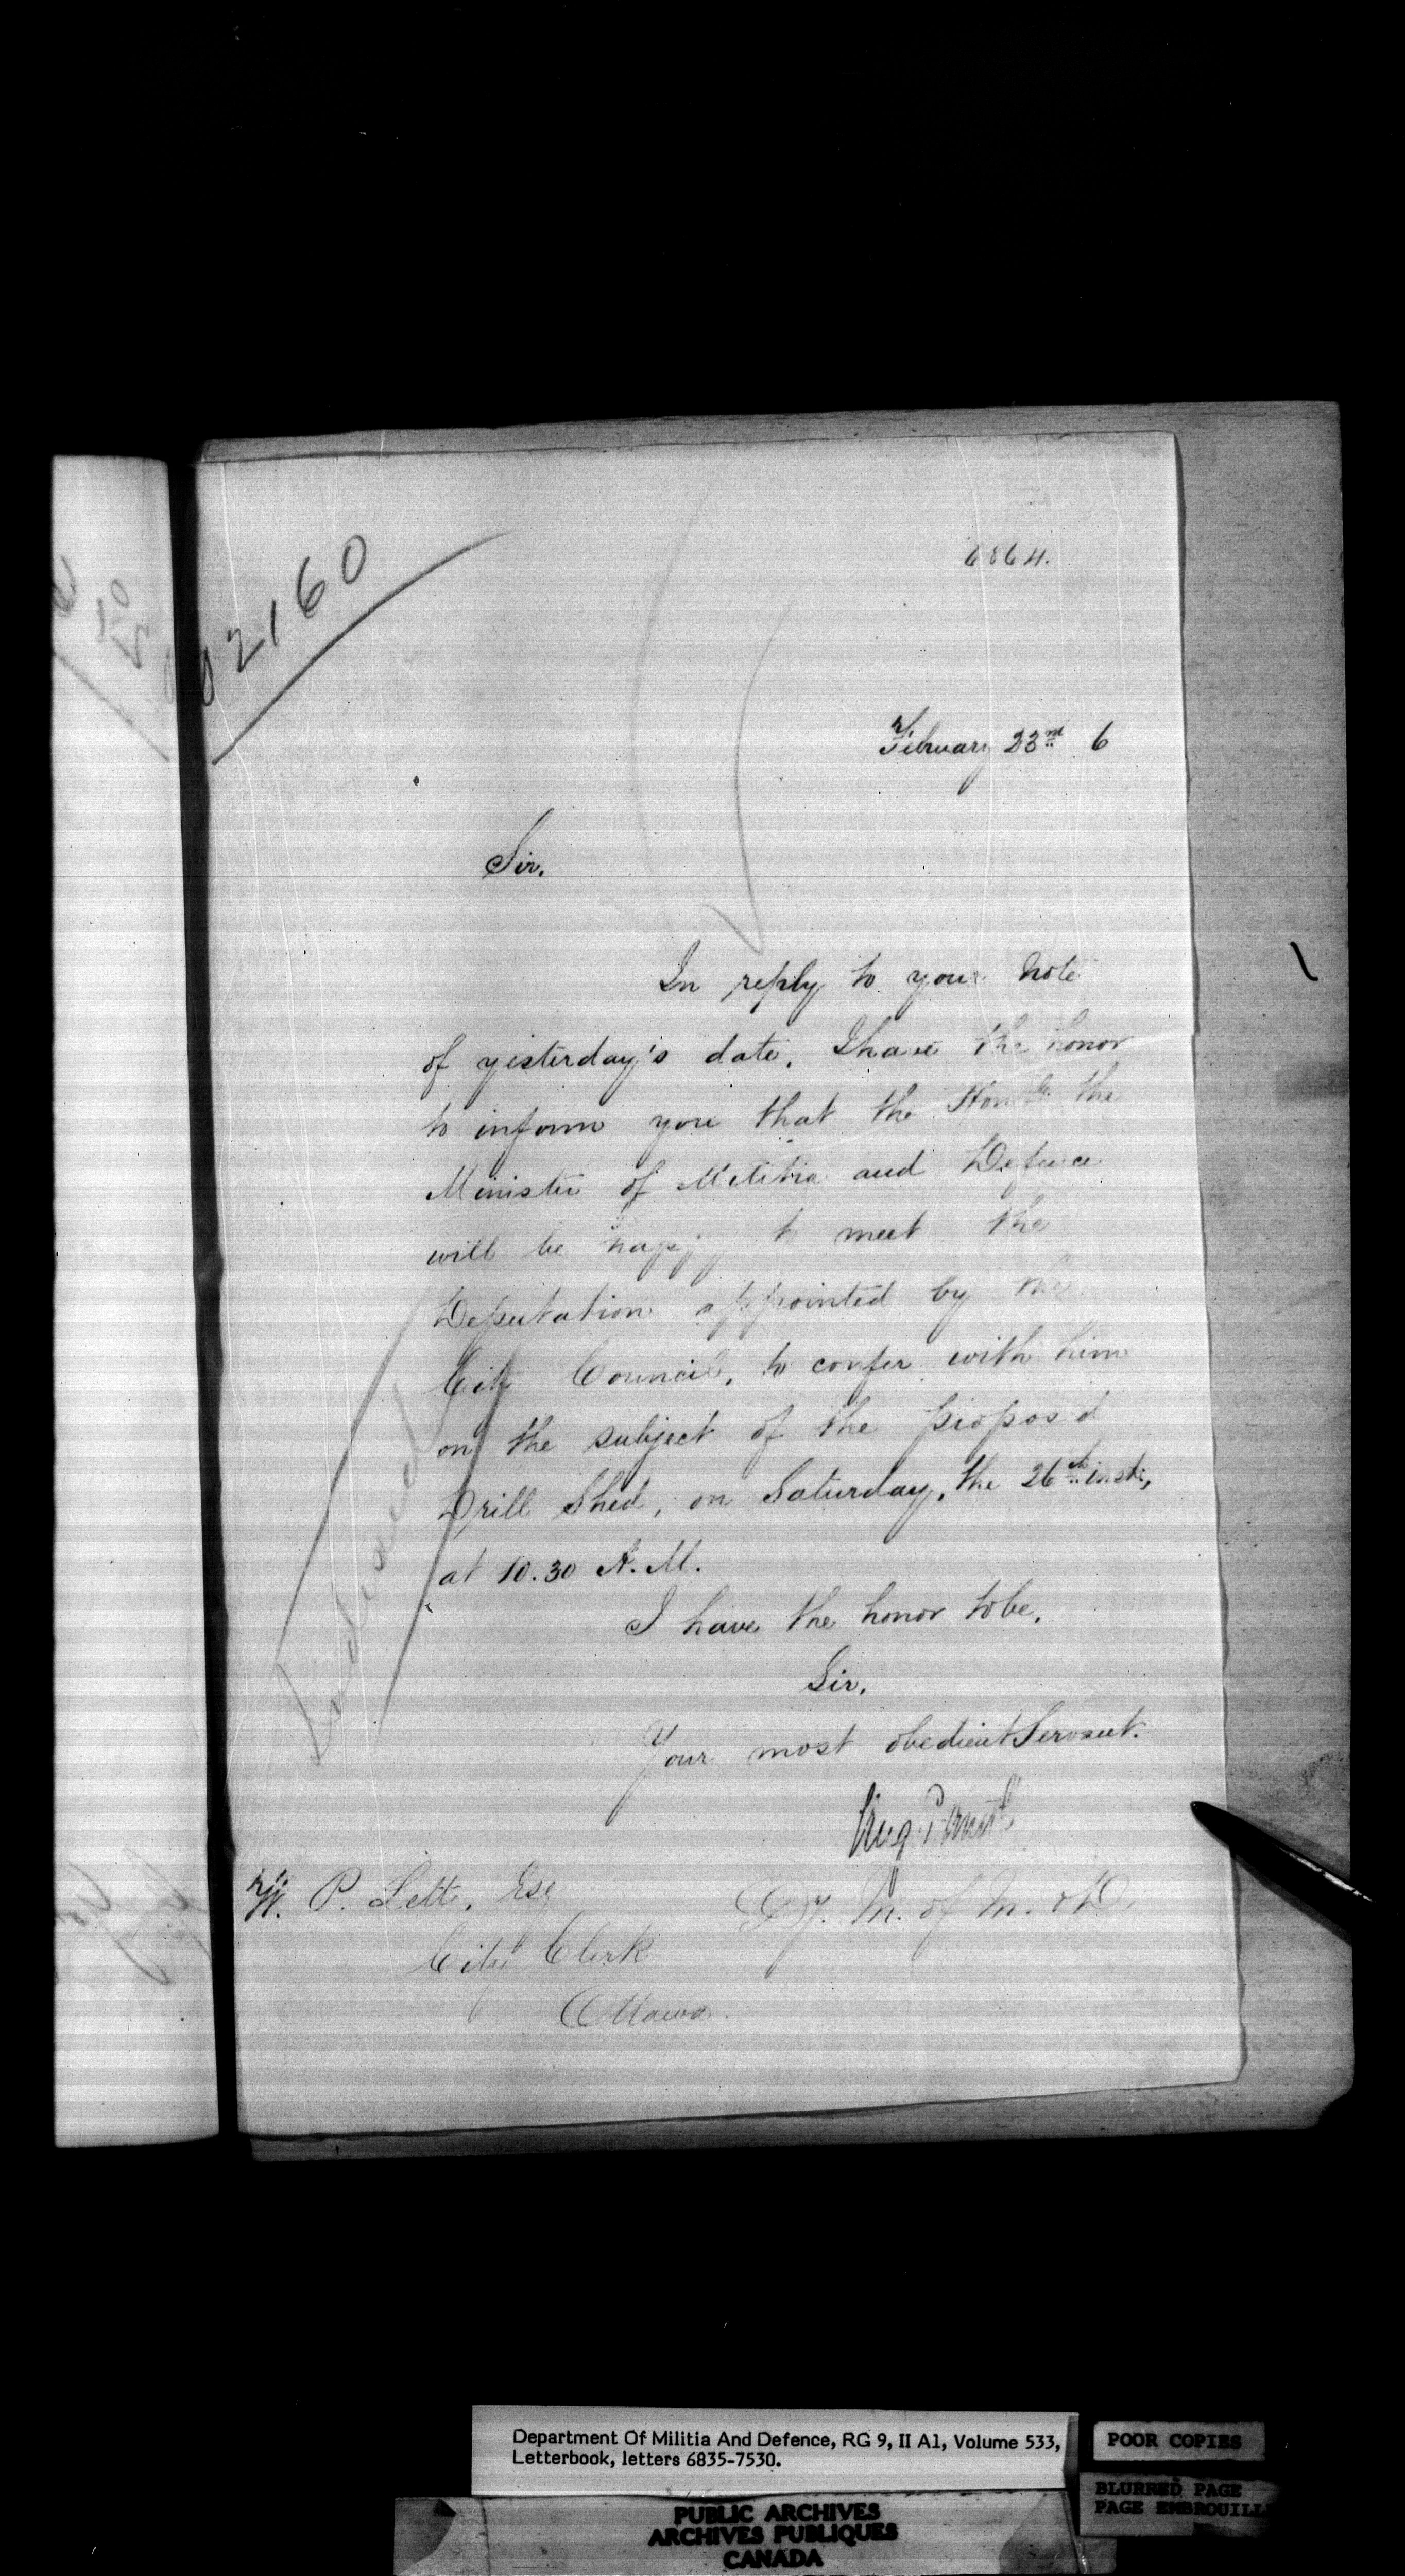 02160
6864.
February 23rd 6
Sir.
In reply to your note
of yesterday's date, I have the honor
to inform you that the Honble the
Minister of Militia and Defence
will be happy to meet the
Deputation appointed by the
City Council, to confer with him
on the subject of the proposed
Drill Shed, on Saturday, the 26th inst,
at 10.30 A.M.
I have the honor to be,
Sir,
Your most obedient Servant.
W. P. Lett, Esq
Dy. M. of M. & D.
City Clerk
Ottawa.
Department Of Militia And Defence, RG 9, II A1, Volume 533,
Letterbook, letters 6835-7530.
POOR COPIES
BLURRED PAGE
PAGE EMBROUILL
PUBLIC ARCHIVES
ARCHIVES PUBLIQUES
CANADA